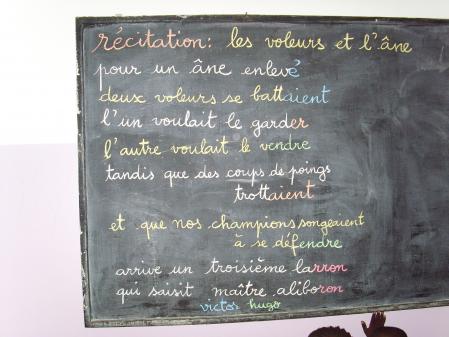 récitation: les voleurs et l'âne
pour un âne enlevé
deux voleurs se battaient
l'un voulait le garder
l'autre voulait le vendre
tandis que des coups de poings
trottaient
et que nos champions songeaient
à se défendre
arrive un troisième larron
qui saisit maître aliboron
victor hugo